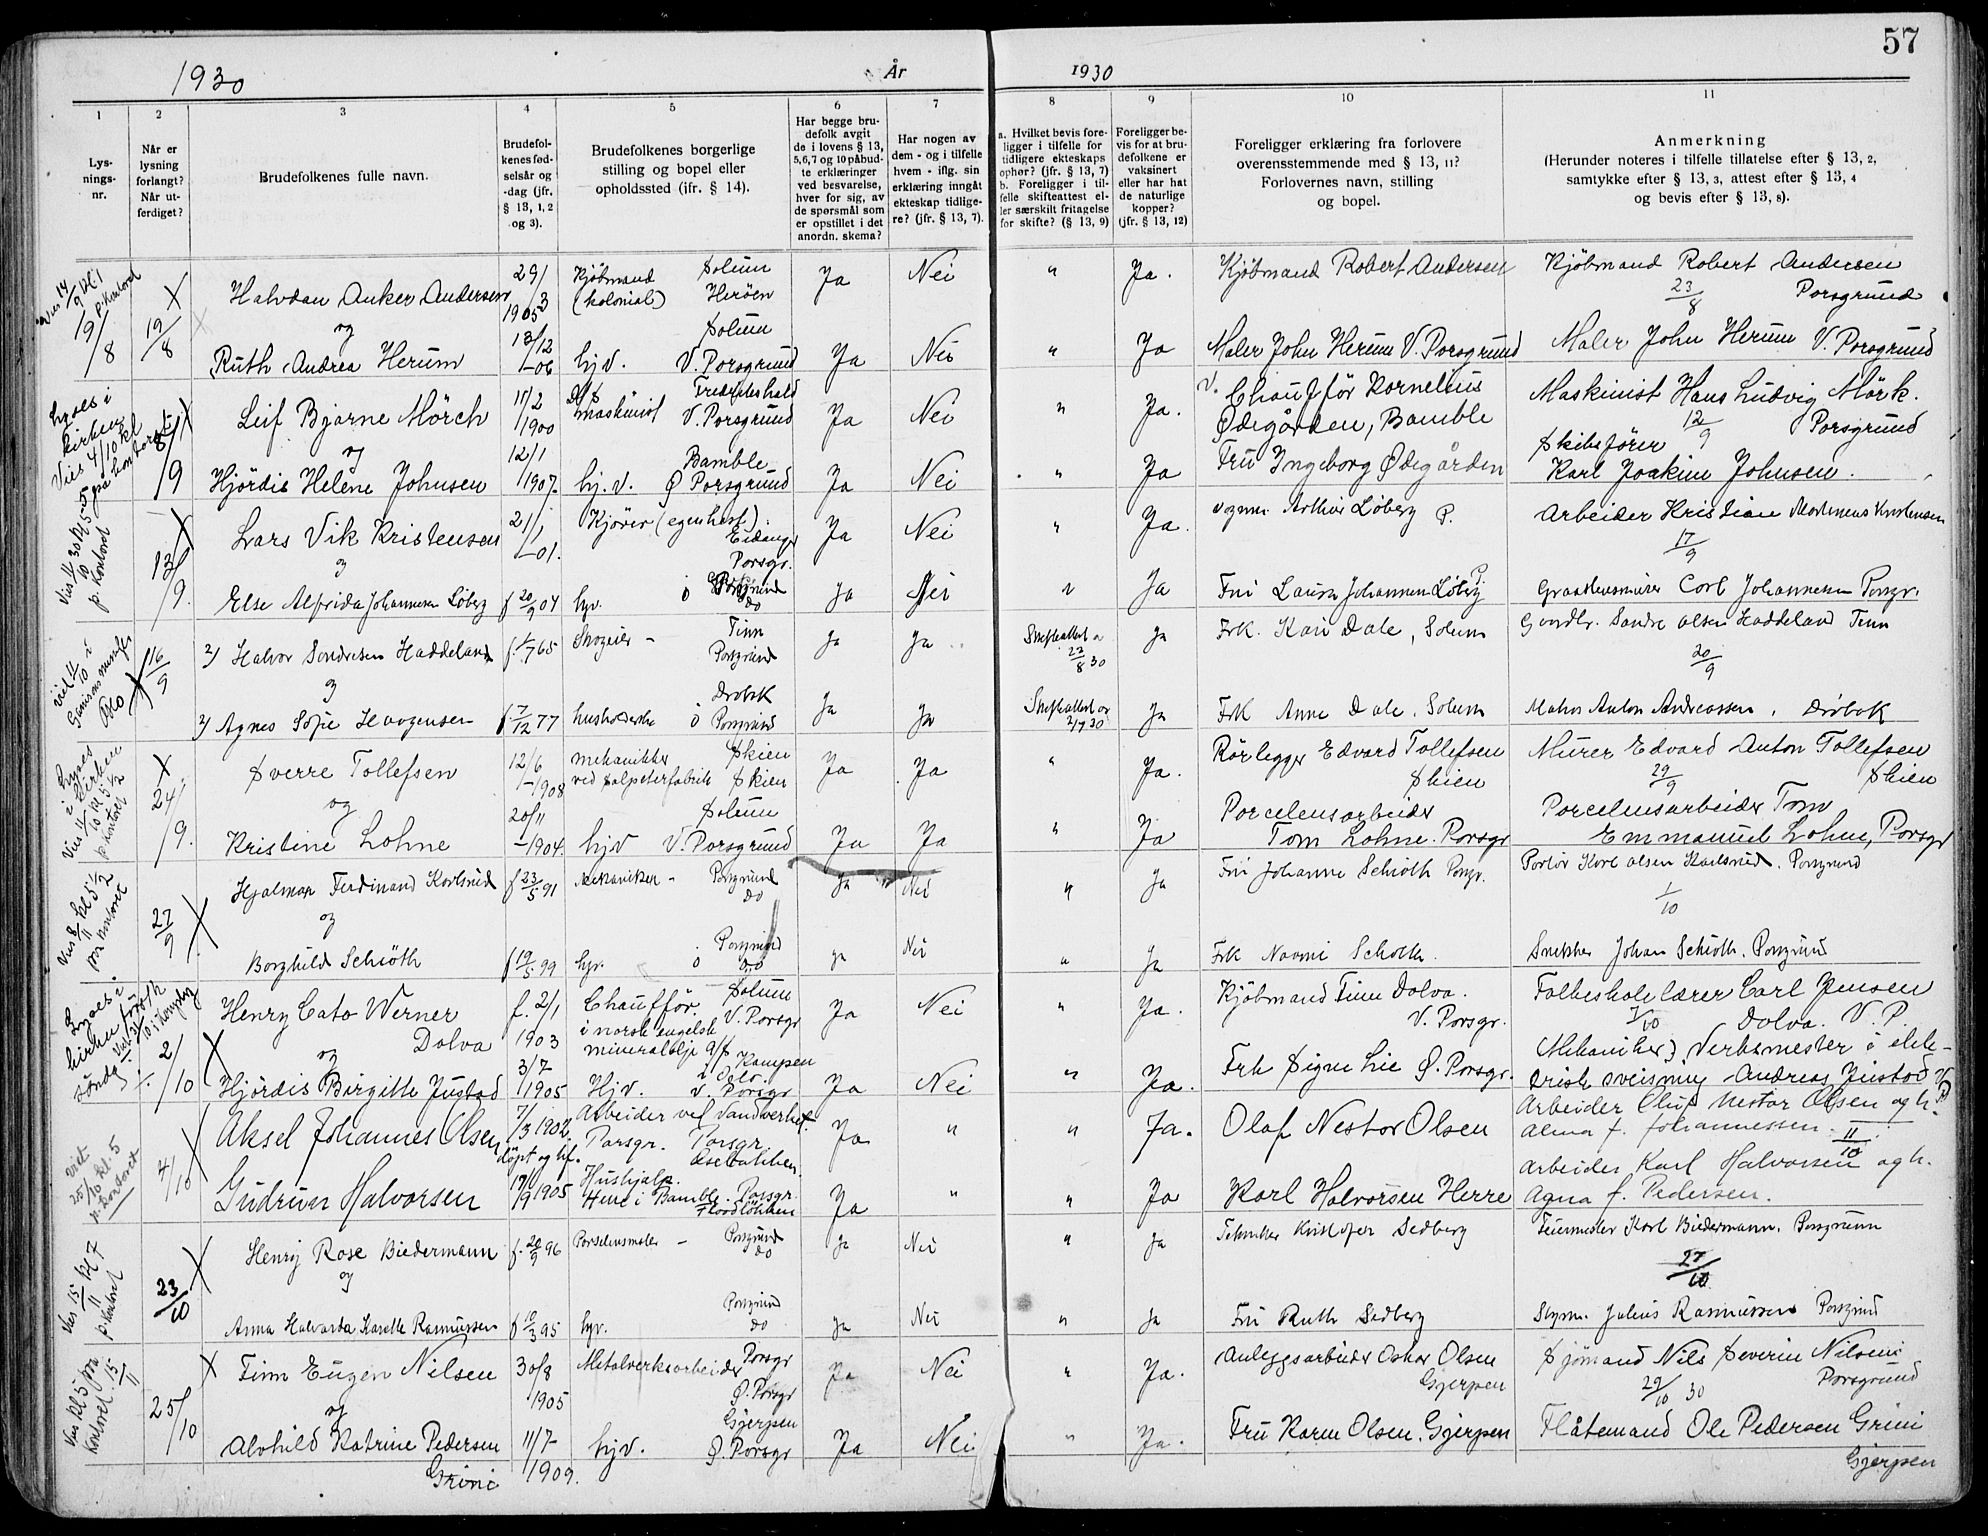 57
1930
År
1930
1
2
3
4
5
6
7
8
9
10
11
Lysnings-
nr.
Når er
lysning
forlangt?
Når ut-
ferdiget?
Brudefolkenes fulle navn.
Brudefol-
kenes fød-
selsår og
-dag (jfr.
§ 13, 1, 2
og 3).
Brudefolkenes borgerlige
stilling og bopel eller
opholdssted (jfr. § 14).
Har begge bru-
defolk avgit
de i lovens § 13,
5,6,7 og 10 påbud-
te erklæringer
ved besvarelse,
hver for sig, av
de spørsmål som
er opstillet i det
anordn. skema?
Har nogen av
dem - og i tilfelle
hvem - iflg. sin
erklæring inngått
ekteskap tidlige-
re? (jfr. § 13, 7).
a. Hvilket bevis fore-
ligger i tilfelle for
tidligere ekteskaps
ophør? (jfr. § 13, 7)
b. Foreligger i til-
felle skifteattest el-
ler særskilt fritagelse
for skifte? (§ 13, 9)
Foreligger be-
vis for at bru-
defolkene er
vaksinert
eller har hat
de naturlige
kopper?
(jfr. § 13, 12)
Foreligger erklæring fra forlovere
overensstemmende med § 13, 11?
Forlovernes navn, stilling
og bopel.
Anmerkning
(Herunder noteres i tilfelle tillatelse efter § 13, 2,
samtykke efter § 13, 3, attest efter § 13, 4
og bevis efter § 13, 8).
Vies 14/9 kl 1 p. kontoret
19/8 19/8 X Halvdan Anker Andersen 29/3 1905 Kjöbmand (kolonial) Solum Herøen Ja Nei " Ja. Kjöbmand Robert Andersen Kjöbmand Robert Andersen 23/8 Porsgrund
og
Ruth Andrea Herum 13/12 -06 hjv. Solum V. Porsgrund Ja Nei " Ja Maler John Herum V. Porsgrund Maler John Herum V. Porsgrund
Lyses i kirken Vies 4/10 kl 5 på kontoret
8/9 X Leif Bjarne Mörch 11/2 1900 maskinist Fredrikshald V. Porsgrund Ja Nei " Ja. Chaufför Kornelius Ødegården, Bamble Maskinist Hans Ludvig Mörk. 12/9 Porsgrund
og
Hjördis Helene Johnsen 12/1 1907. hj. v. Bamble Ø Porsgrund Ja Nei " Ja Fru Ingeborg Ødegården Skibsförer Karl Joakim Johnsen.
Vies 11/10 30 kl 5 p. kontoret
13/9. X Lars Vik Kristensen 21/1 -01. Kjörer (egen hest). Eidanger Porsgr. Ja Nei " Ja. Arthur Löberg P. Arbeider Kristian Martinius Kristensen 17/9
og
Else Alfrida Johannesen Löberg f 20/9 04 hjv. do Ja Nei " Ja Fru Laura Johannesen Löberg Carl Johannesen Porsgr.
Viet 11/10 i
16/9 X 2) Halvor Sondresen Haddeland f. 1/7 65 Skogeier - Tinn Porsgrund Ja Ja Skifteattest a 23/8 30 Ja Frk. Kari Dale, Solum Gaardbr. Sondre Olsen Haddeland Tinn 20/9
og
2) Agnes Sofie Haagensen f 7/12 77 husholderske Drøbak Porsgrund Ja Ja Skifteattest av 2/7 30 Ja Frk Anne Dale. Solum Anton Andreassen, Drøbak
Lyses i kirken Vies 11/10 kl 5 1/2 p. kontoret
24/9. X Sverre Tollefsen 12/6 -1908 mekanikker ved salpeterfabrik Skien Skien Ja Ja " Ja. Rörlegger Edvard Tollefsen Skien Murer Edvard Anton Tollefsen 29/9 Skien
og
Kristine Lohne 20/11 -1904. hjv Solum V. Porsgrund Ja Ja " Ja Porcelensarbeider Tom Lohne. Porsgr Porcelensarbeider Tom Emmanuel Lohne, Porsgr
Vies 8/11 kl 5 1/2 på kontoret
27/9 X Hjalmar Ferdinand Karlsrud f 23/5 91 Mekaniker - Porsgrund do Ja Nei " Ja Fru Johanne Schiöth Porsgr. Portör Karl Olsen Karlsrud. Porsgrund 1/10
og
Borghild Schiöth f 19/5 99 hjv. Porsgrund do Ja Nei " Ja Frk Naomi Schiöth. Snekker Johan Schiöth. Porsgrund
Lyses i kirken
2/10 X Henry Cato Werner Dolva f. 2/1 1903 Chaufför. i norsk engelsk mineralolje a/s Solum V. Porsgr Ja Nei " Ja. Kjöbmand Finn Dolva. V. Porsgr. Folkeskolelærer Carl Jensen Dolva. V. P.
og
Hjördis Birgitte Justad 3/7 1905 Hjv. Kampen i Oslo. V. Porsgr Ja Nei " Ja. Frk Signe Lie Ø. Porsgr. (Mekaniker) Verksmester i elektrisk sveising Andreas Justad
Viet 25/10 kl. 5 p. kontoret
4/10 X Aksel Johannes Olsen 7/3 1902. döpt og kf. Arbeider ved Vandverket. Porsgr. Porsgr. Ja " " Ja. Olaf Nestor Olsen Arbeider Oluf Nestor Olsen og h. Alma f. Johannessen. 11/10
Gudrun Halvorsen 17/9 1905 Hushjælp. Herre i Bamble. Porsgr. Ja " " Ja Karl Halvorsen Herre Arbeider Karl Halvorsen og h. Agna f. Pedersen.
Vies 15/11 kl 7 p. kontoret
23/10 X Henry Rose Biedermann f. 20/9 96 Porselensmaler - Porsgrund do Ja Nei " Ja Tekniker Kristofer Sedberg Feiermester Karl Biedermann. Porsgrunn 27/10
og
Anna Halvarda Karette Rasmussen f 10/3 95 hjv. Porsgrund do Ja Nei " Ja Fru Ruth Sedberg Styrm. Julius Rasmussen Porsgrund
Vies kl 5 på kontoret. 15/11
25/10 X Finn Eugen Nilsen 30/8 1905 Metalverksarbeider Porsgr Ø. Porsgr Ja Nei " Ja. Anleggsarbeider Oskar Olsen Gjerpen Sjömand Nils Severin Nilsen 29/10 30 Porsgrund
og
Alvhild Katrine Pedersen Grini 11/7 1909. hjv. Gjerpen Ø. Porsgr Ja Nei " Ja. Fru Karen Olsen. Gjerpen Flåtemand Ole Pedersen Grini Gjerpen